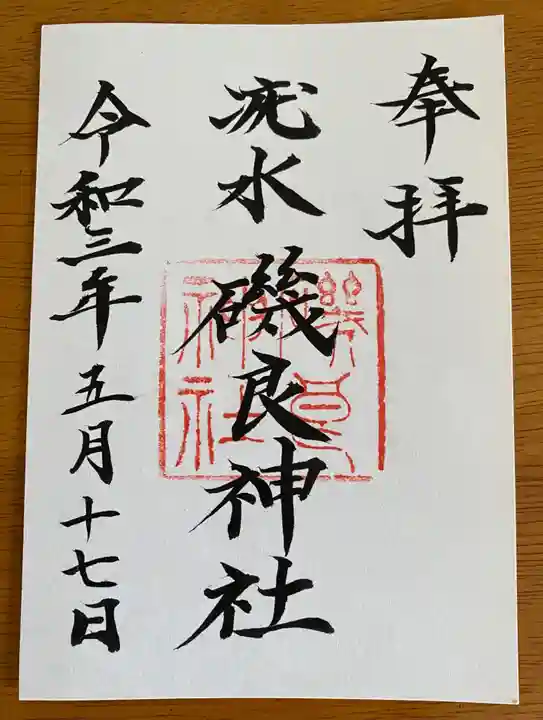 奉拝
疣水磯良神社
磯良神社
令和三年五月十七日